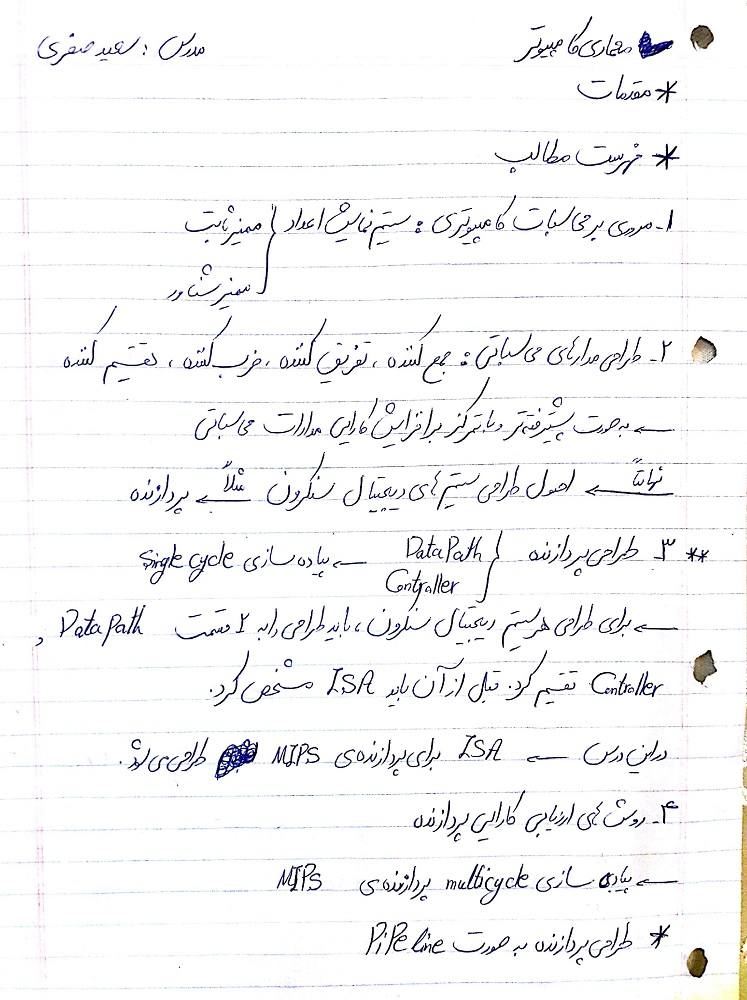 معماری کامپیوتر مدرس : سعید صفری
* مقدمات
* فهرست مطالب
۱- مروری بر محاسبات کامپیوتری : سیستم نمایش اعداد { ممیز ثابت
ممیز شناور
۲- طراحی مدارهای محاسباتی : جمع کننده ، تفریق کننده ، ضرب کننده ، تقسیم کننده
← به صورت پیشرفته‌تر و با تمرکز بر افزایش کارایی مدارات محاسباتی
نهایتاً ← اصول طراحی سیستم های دیجیتال سنکرون مثلاً ← پردازنده
** ۳- طراحی پردازنده { DataPath ← پیاده سازی Single cycle
Controller
← برای طراحی هر سیستم دیجیتال سنکرون ، باید طراحی را به ۲ قسمت DataPath و
Controller تقسیم کرد. قبل از آن باید ISA مشخص کرد.
در این درس ← ISA برای پردازنده‌ی MIPS طراحی می‌شود.
۴- روش های ارزیابی کارایی پردازنده
← پیاده سازی multicycle پردازنده‌ی MIPS
* طراحی پردازنده به صورت PiPeline